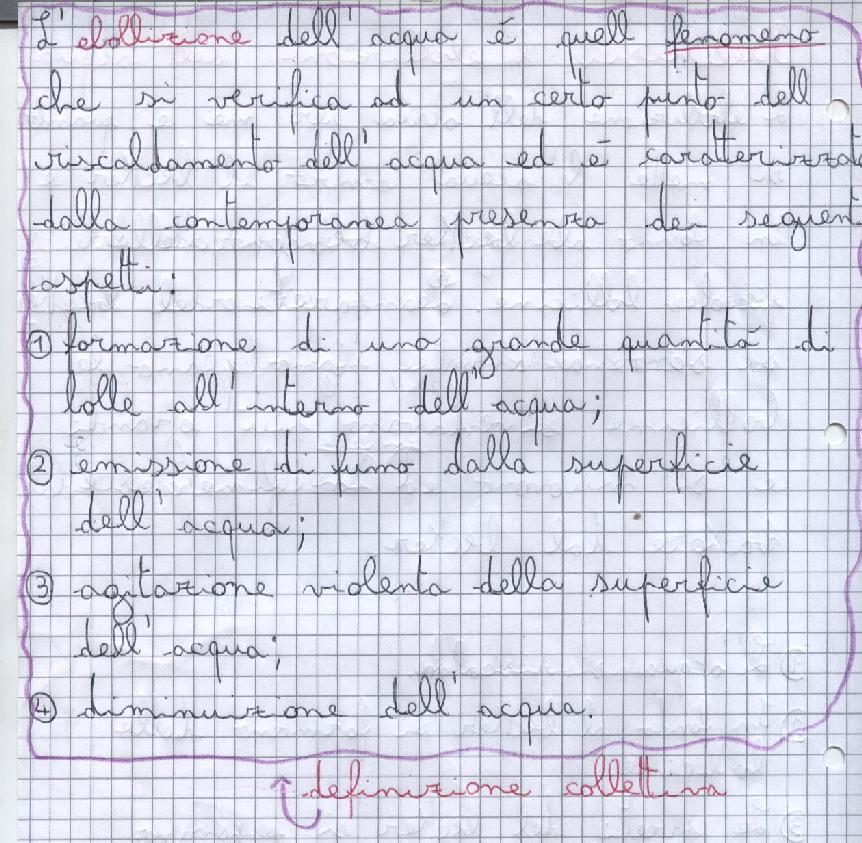 L'ebollizione dell'acqua é quell fenomeno
che si verifica ad un certo punto dell
riscaldamento dell'acqua ed é caratterizzato
dalla contemporanea presenza dei seguent
aspetti:
① formazione di una grande quantitá di
bolle all'interno dell'acqua;
② emissione di fumo dalla superficie
dell'acqua;
③ agitazione violenta della superficie
dell'acqua;
④ diminuizione dell'acqua.
definizione collettiva